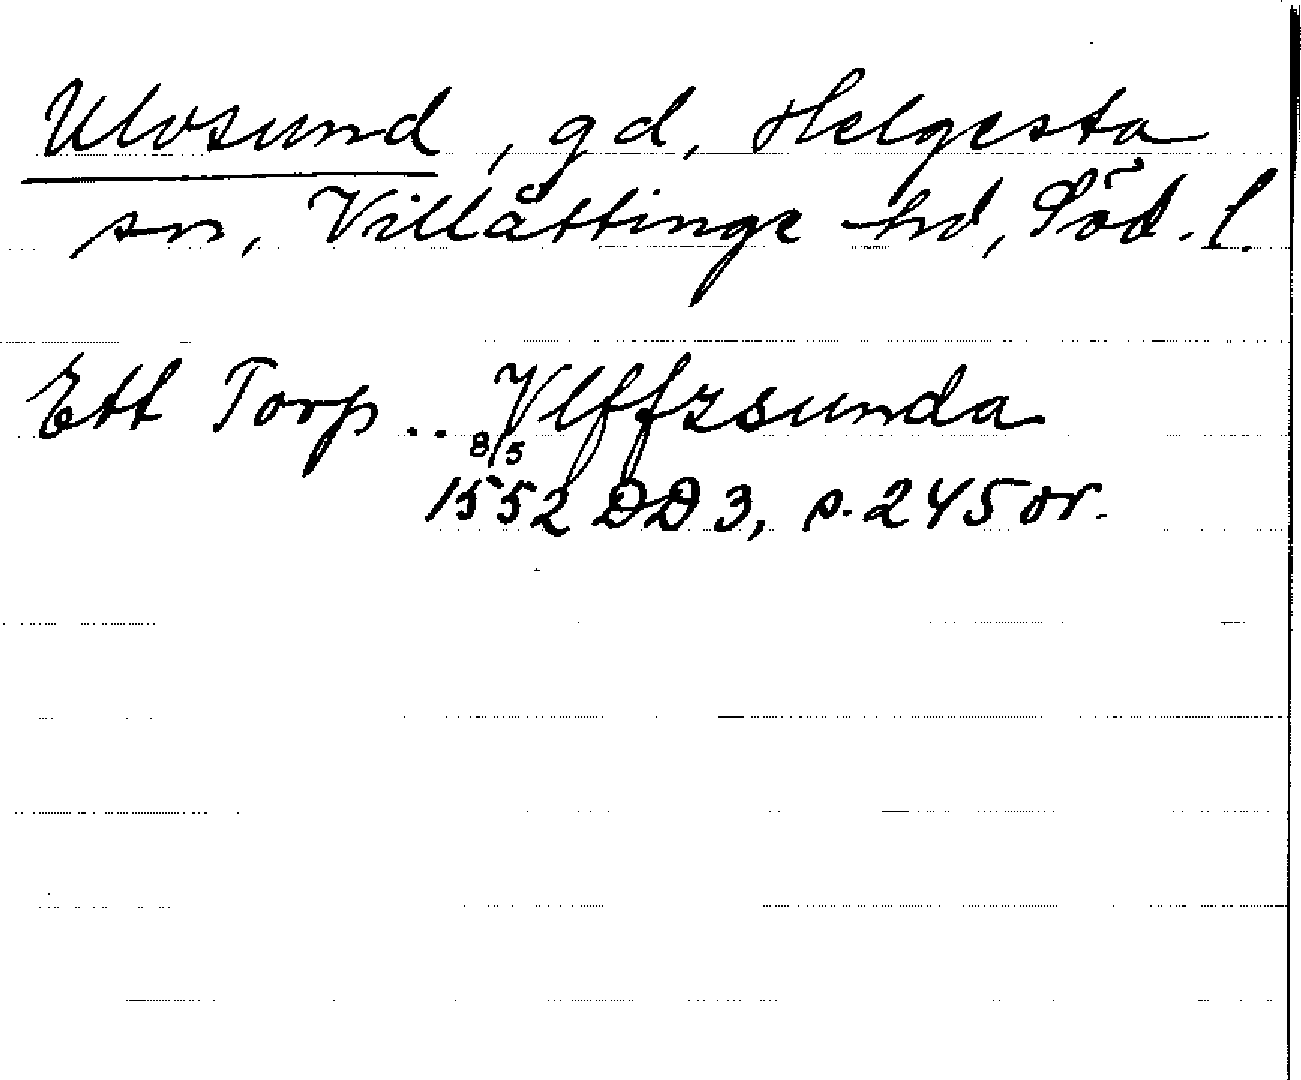 Ulvsund, gd, Helgesta
sn, Villåttinge hd, Söd. l.
Ett Torp .. Vlffzsunda
8/5 1552 DD 3, s. 245 or.